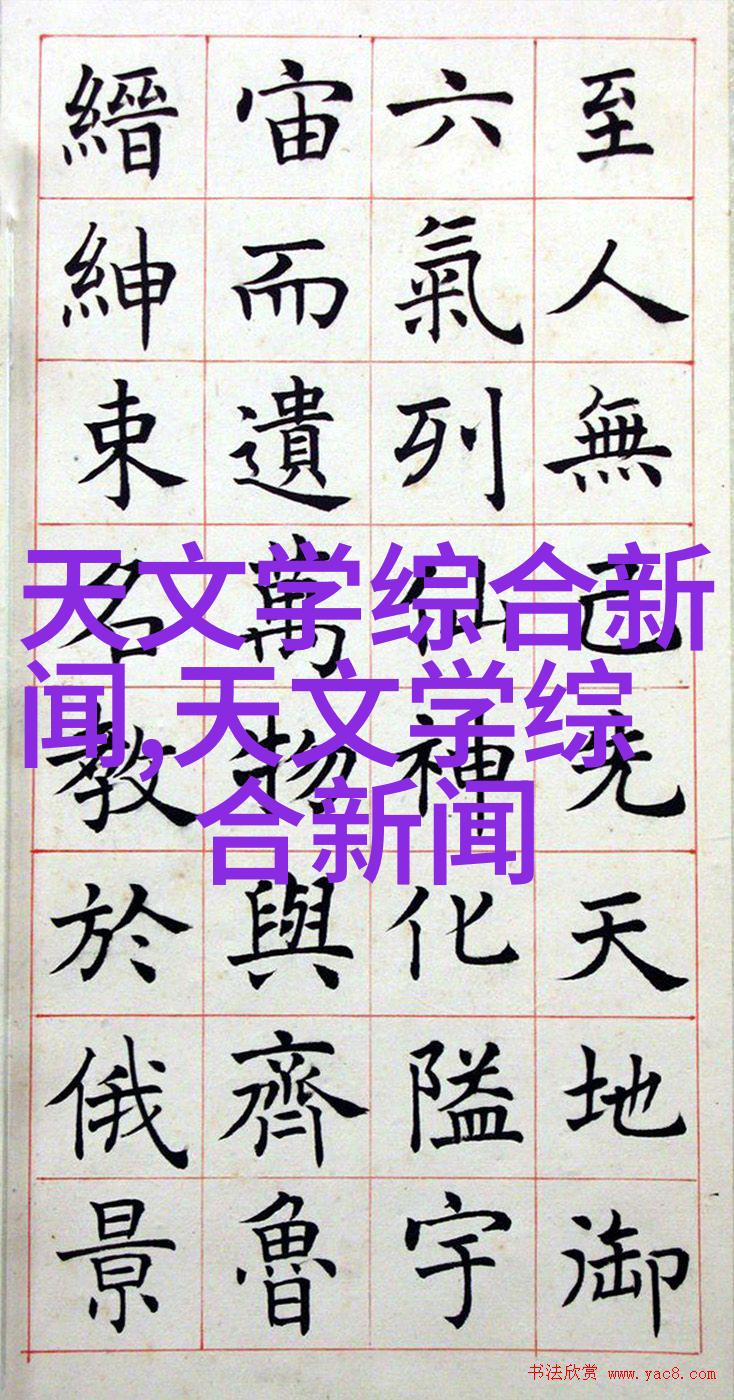 至人無己先天地御
六氣列仙神化隘宇
宙而遺萬物與齊魯
縉紳束名教於俄景
天文学综合新
闻,天文学综
合新闻
书法欣赏 www.yac8.com